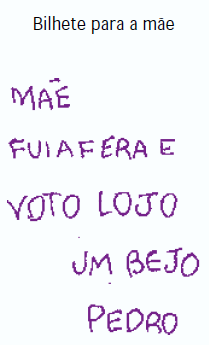 Bilhete para a mãe
MÃE
FUIAFERA E
VOTO LOJO
UM BEJO
PEDRO